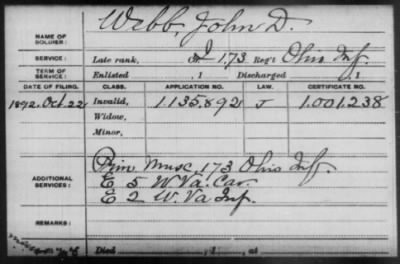 NAME OF SOLDIER: Webb, John D.
SERVICE: Late rank, I 173 Reg't Ohio Inf.
TERM OF SERVICE: Enlisted , 1 Discharged , 1
DATE OF FILING. CLASS. APPLICATION NO. LAW. CERTIFICATE NO.
1892. Oct. 22 Invalid, 1.135.892 J 1.001.238
Widow,
Minor,
ADDITIONAL SERVICES: Prin Musc, 173 Ohio Inf.
E 5 W. Va. Cav.
E 2 W. Va Inf.
REMARKS:
Died , 1 , at